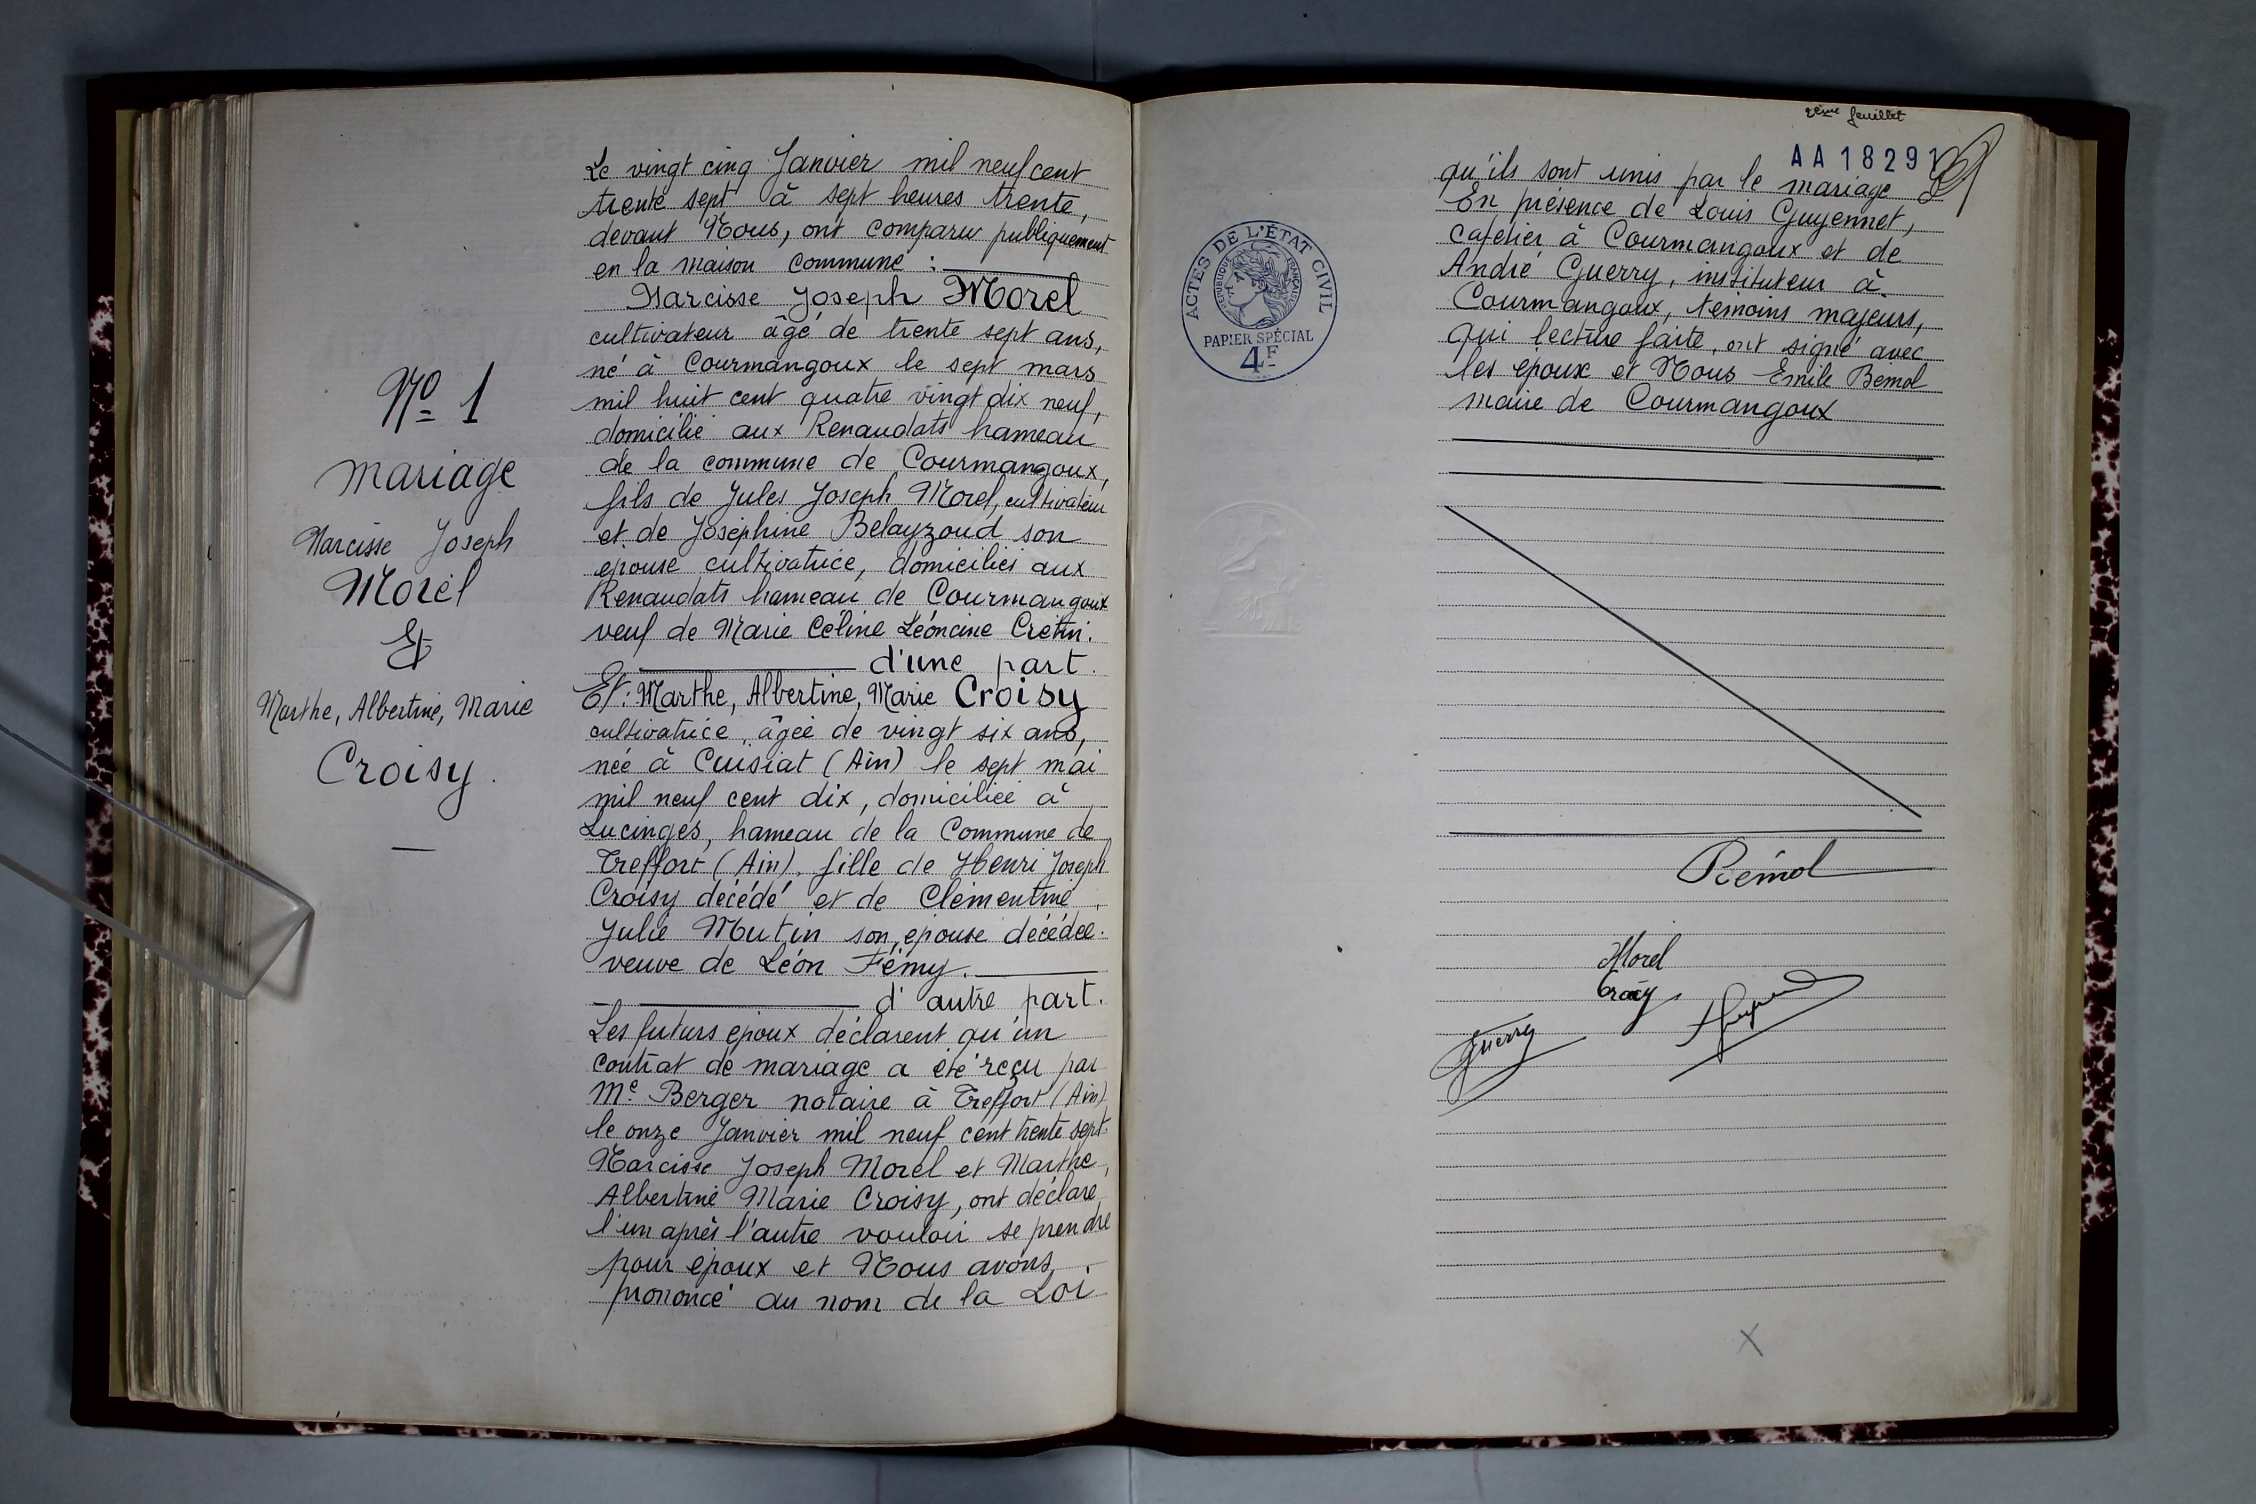 Nº 1
Mariage
Narcisse Joseph
Morel
Et
Marthe, Albertine, Marie
Croisy.
Le vingt cinq Janvier mil neuf cent
trente sept à sept heures trente,
devant Nous, ont comparu publiquement
en la maison commune :
Narcisse Joseph Morel
cultivateur âgé de trente sept ans,
né à Courmangoux le sept mars
mil huit cent quatre vingt dix neuf,
domicilié aux Renaudats hameau
de la commune de Courmangoux,
fils de Jules Joseph Morel, cultivateur
et de Joséphine Belayzoud son
épouse cultivatrice, domiciliés aux
Renaudats hameau de Courmangoux
veuf de Marie Céline Léoncine Cretin.
d'une part.
Et : Marthe, Albertine, Marie Croisy
cultivatrice, âgée de vingt six ans,
née à Cuisiat (Ain) le sept mai
mil neuf cent dix, domiciliée à
Lucinges, hameau de la Commune de
Treffort (Ain). fille de Henri Joseph
Croisy décédé et de Clémentine
Julie Mutin son épouse décédée.
veuve de Léon Fémy.
d'autre part.
Les futurs époux déclarent qu'un
contrat de mariage a été reçu par
Me Berger notaire à Treffort (Ain)
le onze Janvier mil neuf cent trente sept.
Narcisse Joseph Morel et Marthe,
Albertine Marie Croisy, ont déclaré
l'un après l'autre vouloir se prendre
pour époux et Nous avons
prononcé au nom de la Loi
2ème feuillet
AA 18291
qu'ils sont unis par le mariage
En présence de Louis Guyennet,
cafetier à Courmangoux et de
André Guerry, instituteur à
Courmangoux, témoins majeurs,
qui lecture faite, ont signé avec
les époux et Nous Emile Bémol
maire de Courmangoux
ACTES DE L'ÉTAT CIVIL
RÉPUBLIQUE FRANÇAISE
PAPIER SPÉCIAL
4F
Bémol
Morel
Croisy
Guerry
X